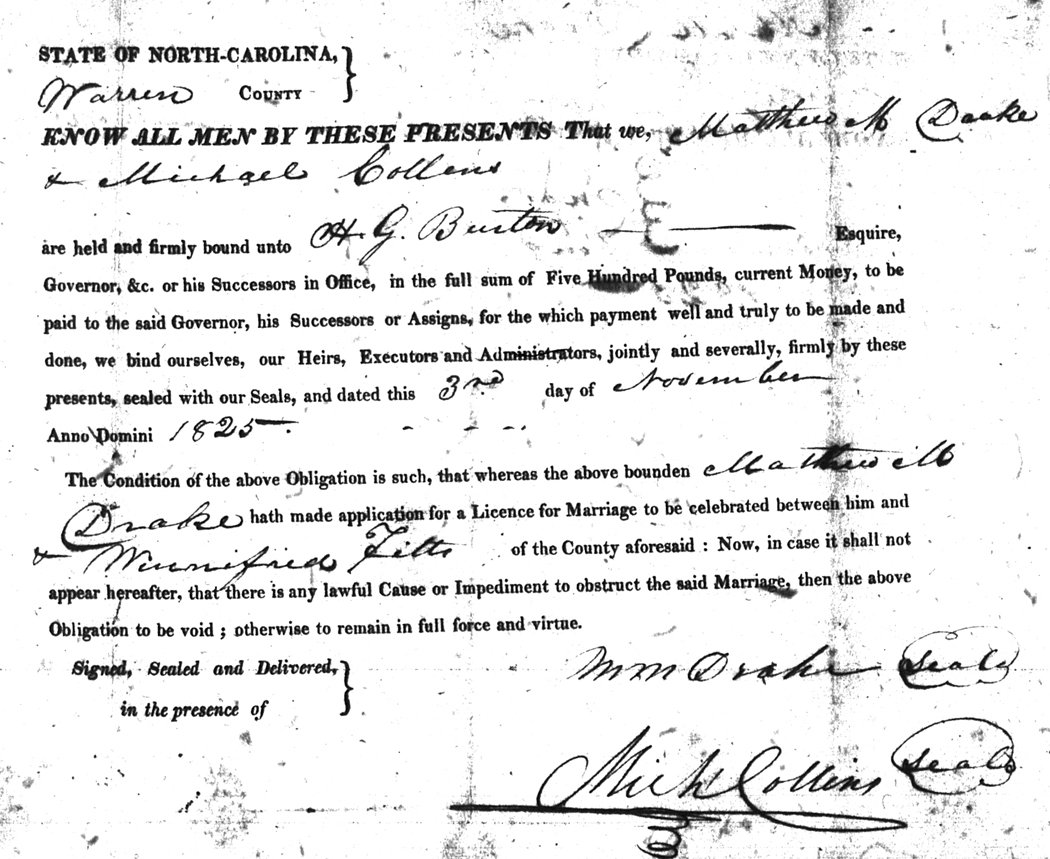 STATE OF NORTH-CAROLINA,
Warren COUNTY
KNOW ALL MEN BY THESE PRESENTS That we, Matthew M Drake
& Michael Collens
are held and firmly bound unto H. G. Burton Esquire,
Governor, &c. or his Successors in Office, in the full sum of Five Hundred Pounds, current Money, to be
paid to the said Governor, his Successors or Assigns, for the which payment well and truly to be made and
done, we bind ourselves, our Heirs, Executors and Administrators, jointly and severally, firmly by these
presents, sealed with our Seals, and dated this 3rd day of November
Anno Domini 1825.
The Condition of the above Obligation is such, that whereas the above bounden Matthew M
Drake hath made application for a Licence for Marriage to be celebrated between him and
& Winnifred Fitts of the County aforesaid : Now, in case it shall not
appear hereafter, that there is any lawful Cause or Impediment to obstruct the said Marriage, then the above
Obligation to be void ; otherwise to remain in full force and virtue.
Signed, Sealed and Delivered,
in the presence of
M M Drake Seal
Mich Collins Seal